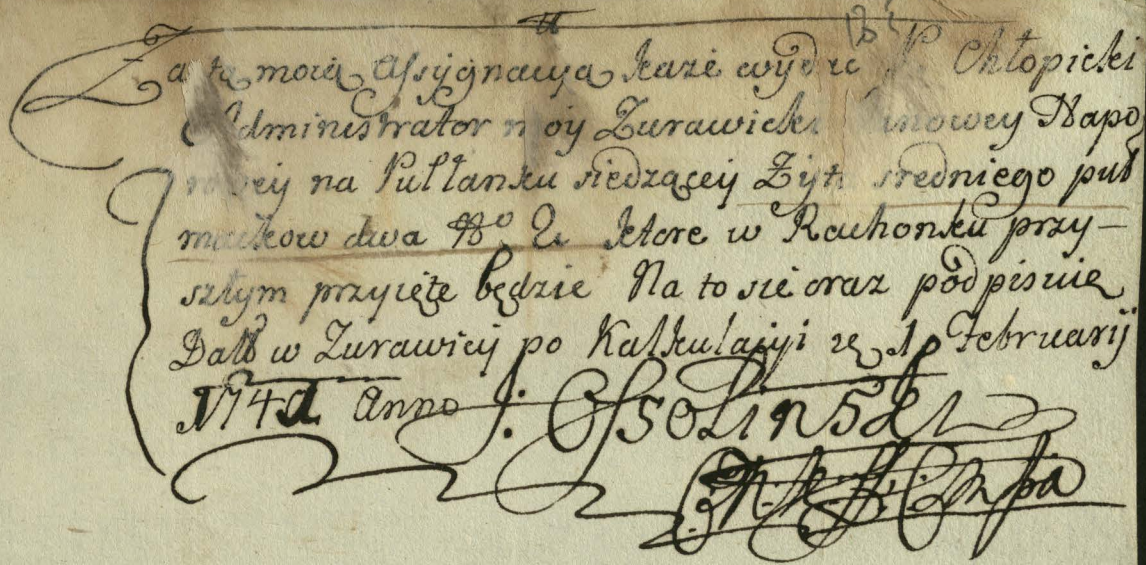 Za tą moią Assygnacyą každe wydać P. Chłopicki
Administrator moy Zurawicki Napo
na Pułłanku siedzącey Zyta sredniego puł
mackow dwa No 2 ktore w Rachonku przy-
szłym przyięte będzie Na to się oraz podpisuię
Datt w Zurawicy po Kalkulacyi 1 Februarij
1741 Anno J: Ossolinski